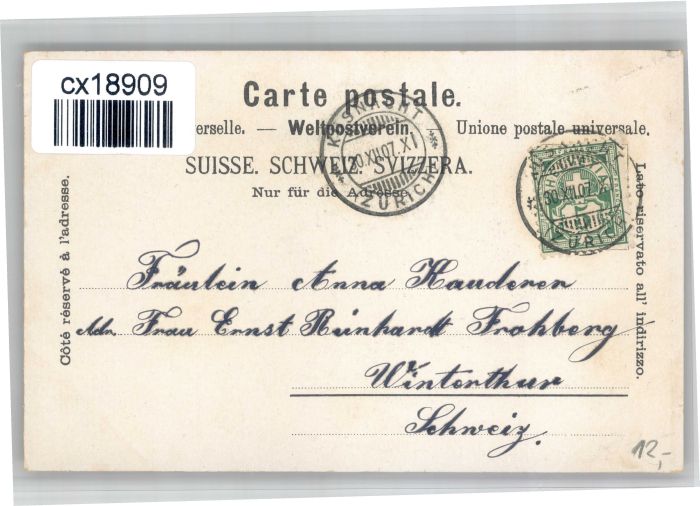 cx18909
Carte postale.
erselle. — Weltpostverein. Unione postale universale.
SUISSE. SCHWEIZ. SVIZZERA.
Nur für die Adresse
Côté réservé à l'adresse.
Lato riservato all' indirizzo.
KÜSNACHT
30.XII.07.XI
ZÜRICH
30.XII.07.X
Fräulein Anna Kauderer
Adr. Frau Ernst Reinhardt Frohberg
Winterthur
Schweiz.
12,-